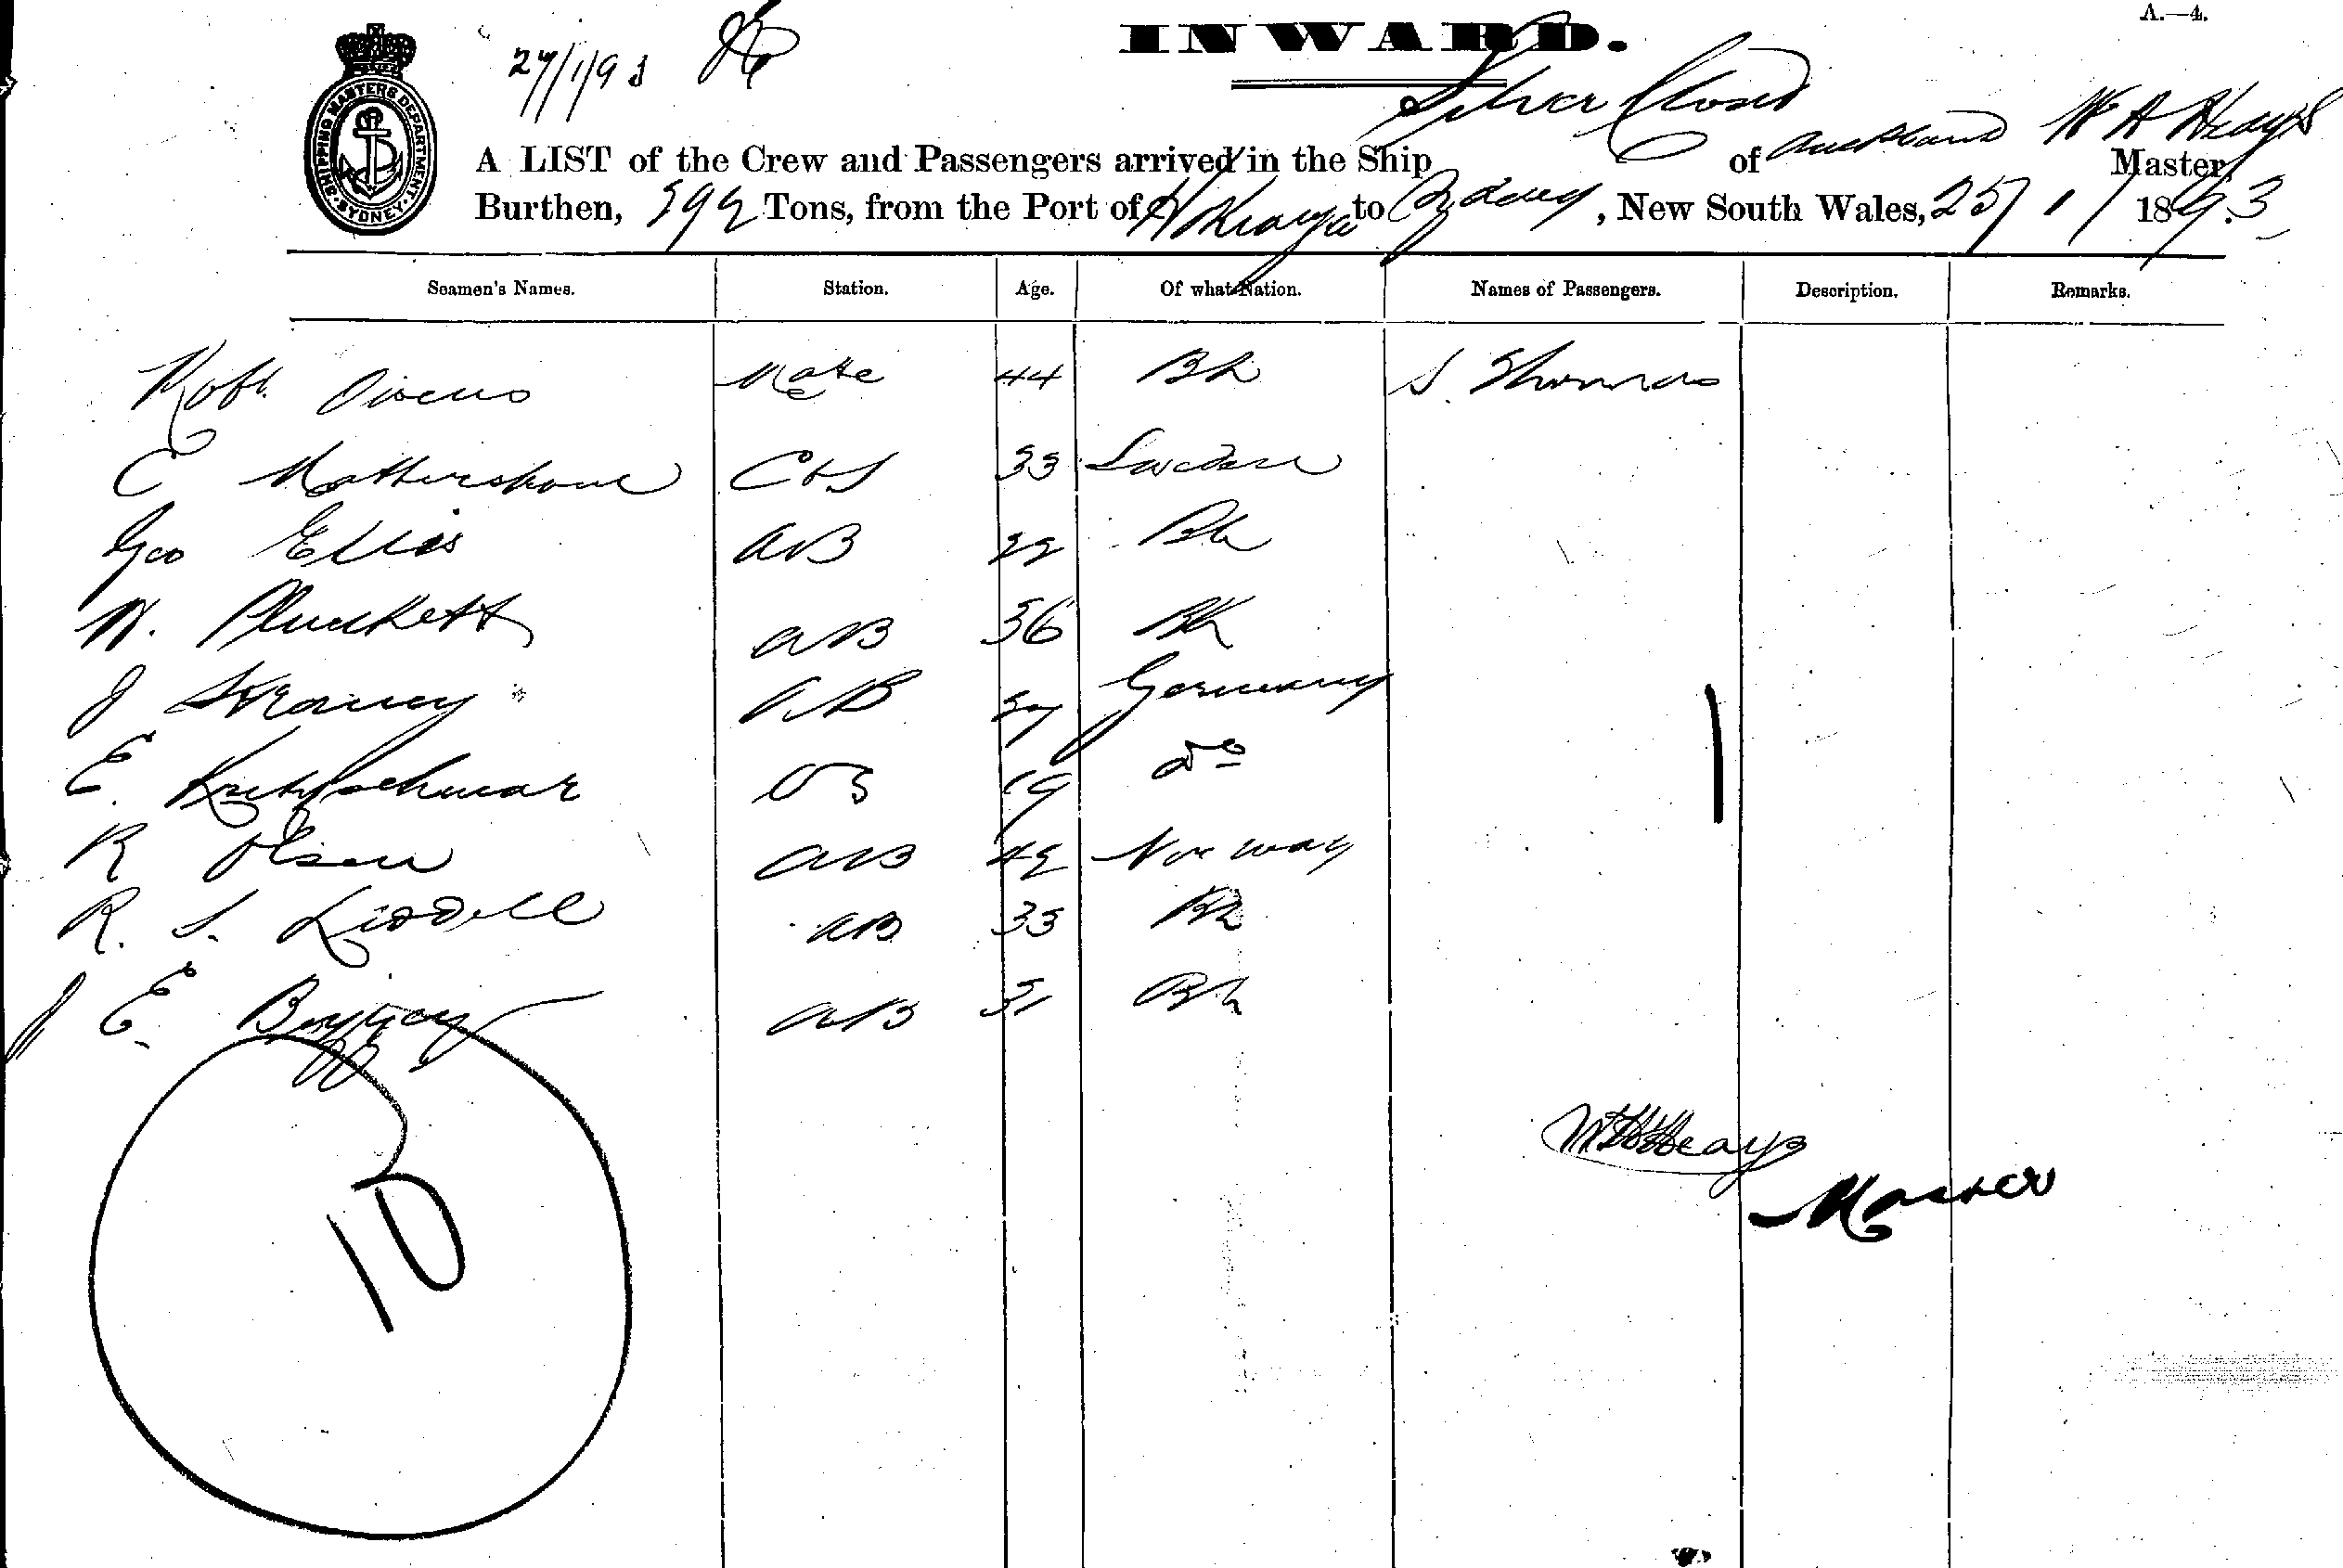 A.—4.
INWARD.
27/1/93
SHIPPING MASTERS DEPARTMENT SYDNEY
Silver Cloud
A LIST of the Crew and Passengers arrived in the Ship of Auckland W A Heays Master,
Burthen, Tons, from the Port of to Sydney, New South Wales, 25/1/1893
Seamen's Names. Station. Age. Of what Nation. Names of Passengers. Description. Remarks.
Robt. Owens Mate 44 Bh S.
C C & S 33 Sweden
Geo Ellis AB 22 Bh
W. Pluckett AB 36 Bh
J AB Germany
E. OS 19 do
R Olsen AB 42 Norway
R. S. Liddell AB 33 Bh
J E. AB 31 Bh
10
Heays
Master